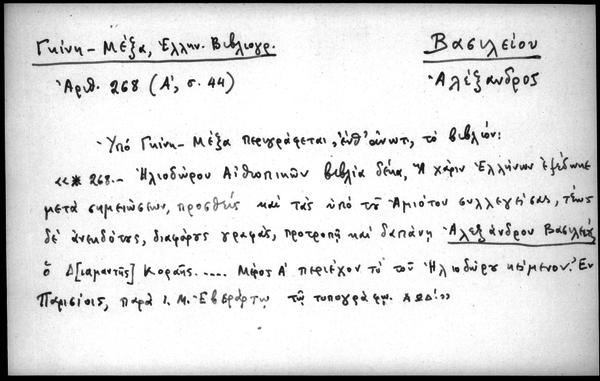 Γκίνη - Μέξα, Ἑλλην. Βιβλιογρ.
Ἀριθ. 268 (Α', σ. 44)
Βασιλείου
Ἀλέξανδρος
Ὑπό Γκίνη - Μέξα περιγράφεται, τό βιβλίον:
«* 268.- Ἡλιοδώρου Αἰθιοπικῶν βιβλία δέκα, ἅ χάριν Ἑλλήνων ἐξέδωκε
μετά σημειώσεων, προσθείς καί τάς ὑπό τοῦ Ἀμιότου συλλεγείσας, τέως
δέ ἀνεκδότους, διαφόρους γραφάς, προτροπῇ καί δαπάνῃ Ἀλεξάνδρου Βασιλείου
ὁ Δ[ιαμαντής] Κοραῆς..... Μέρος Α' περιέχον τό τοῦ Ἡλιοδώρου κείμενον. Ἐν
Παρισίοις, παρά Ι. Μ. Ἐβεράρτῳ τῷ τυπογράφῳ. ΑΩΔ'.»